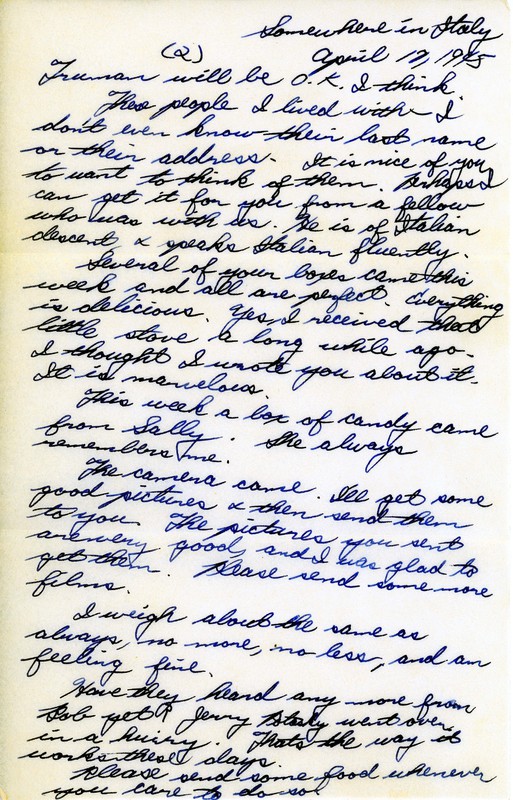 Somewhere in Italy
(2) April 17, 1945
Truman will be O.K. I think.
Those people I lived with I
don't even know their last name
or their address. It is nice of you
to want to think of them. Perhaps I
can get it for you from a fellow
who was with us. He is of Italian
descent, & speaks Italian fluently.
Several of your boxes came this
week and all are perfect. Everything
is delicious. Yes, I received that
little stove a long while ago.
I thought I wrote you about it.
It is marvelous.
This week a box of candy came
from Sally. She always
remembers me.
The camera came. I'll get some
good pictures & then send them
to you. The pictures you sent
are very good, and I was glad to
get them. Please send some more
films.
I weigh about the same as
always, no more, no less, and am
feeling fine.
Have they heard any more from
Bob yet? Jerry went over
in a hurry. Thats the way it
works these days.
Please send some food whenever
you care to do so.